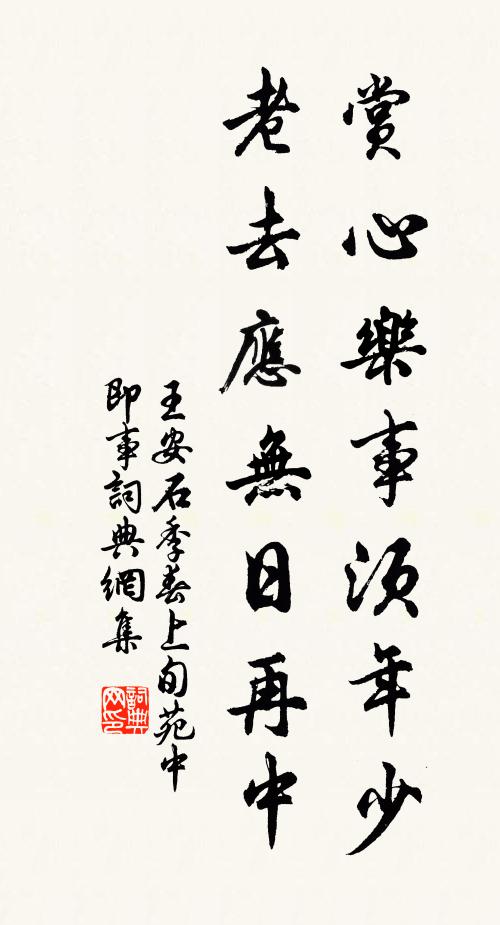 賞心樂事須年少
老去應無日再中
王安石季春上旬苑中
即事詞典網集
詞典網印